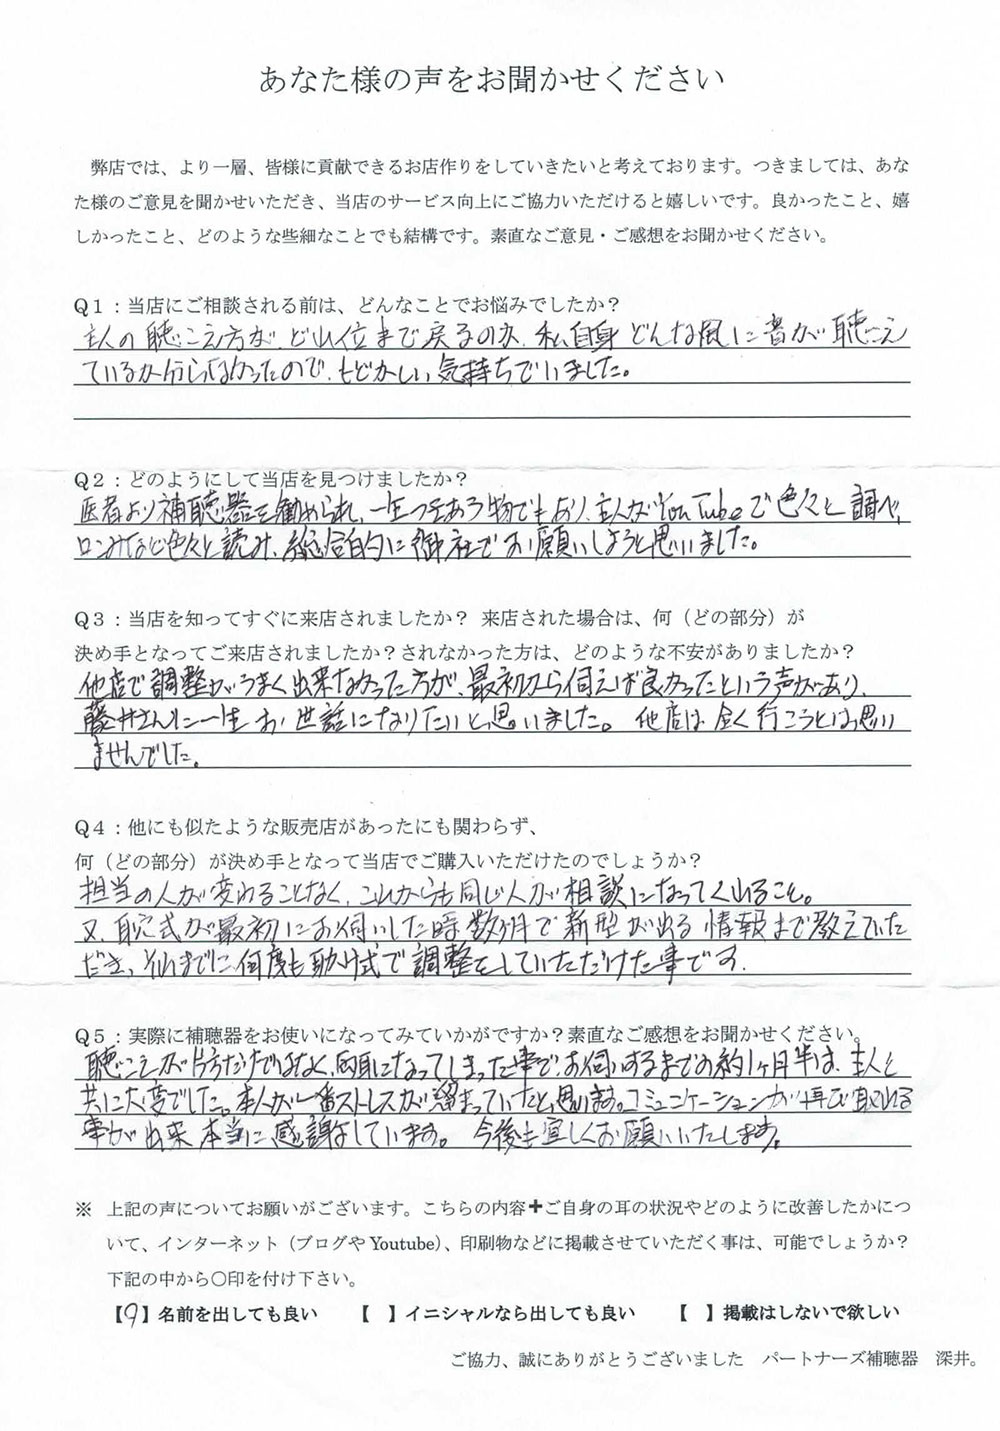 あなた様の声をお聞かせください
弊店では、より一層、皆様に貢献できるお店作りをしていきたいと考えております。つきましては、あな
た様のご意見を聞かせいただき、当店のサービス向上にご協力いただけると嬉しいです。良かったこと、嬉
しかったこと、どのような些細なことでも結構です。素直なご意見・ご感想をお聞かせください。
Q1：当店にご相談される前は、どんなことでお悩みでしたか？
主人の聴こえ方が、どれ位まで戻るのか、私自身どんな風に音が聴こえ
ているか分らなかったので、もどかしい気持ちでいました。
Q2：どのようにして当店を見つけましたか？
医者より補聴器を勧められ、一生つきあう物でもあり、主人がYouTubeで色々と調べ、
口コミなど色々と読み、総合的に御社でお願いしようと思いました。
Q3：当店を知ってすぐに来店されましたか？ 来店された場合は、何（どの部分）が
決め手となってご来店されましたか？されなかった方は、どのような不安がありましたか？
他店で調整がうまく出来なかった方が、最初から伺えば良かったという声があり、
藤井さんに一生お世話になりたいと思いました。他店は全く行こうとは思い
ませんでした。
Q4：他にも似たような販売店があったにも関わらず、
何（どの部分）が決め手となって当店でご購入いただけたのでしょうか？
担当の人が変わることなく、これからも同じ人が相談になってくれること。
又、最初にお伺いした時数ヶ月で新型が出る情報まで教えていた
だき、それまでに何度も式で調整をしていただけた事です。
Q5：実際に補聴器をお使いになってみていかがですか？素直なご感想をお聞かせください。
聴こえが片方だけではなく、両耳になってしまった事で、お伺いするまでの約1ヶ月半は、主人と
共に大変でした。本人が一番ストレスが溜まっていたと思います。コミュニケーションが再び取れる
事が出来本当に感謝しています。今後も宜しくお願いいたします。
※ 上記の声についてお願いがございます。こちらの内容＋ご自身の耳の状況やどのように改善したかにつ
いて、インターネット（ブログやYoutube）、印刷物などに掲載させていただく事は、可能でしょうか？
下記の中から〇印を付け下さい。
【〇】名前を出しても良い 【 】イニシャルなら出しても良い 【 】掲載はしないで欲しい
ご協力、誠にありがとうございました パートナーズ補聴器 深井。